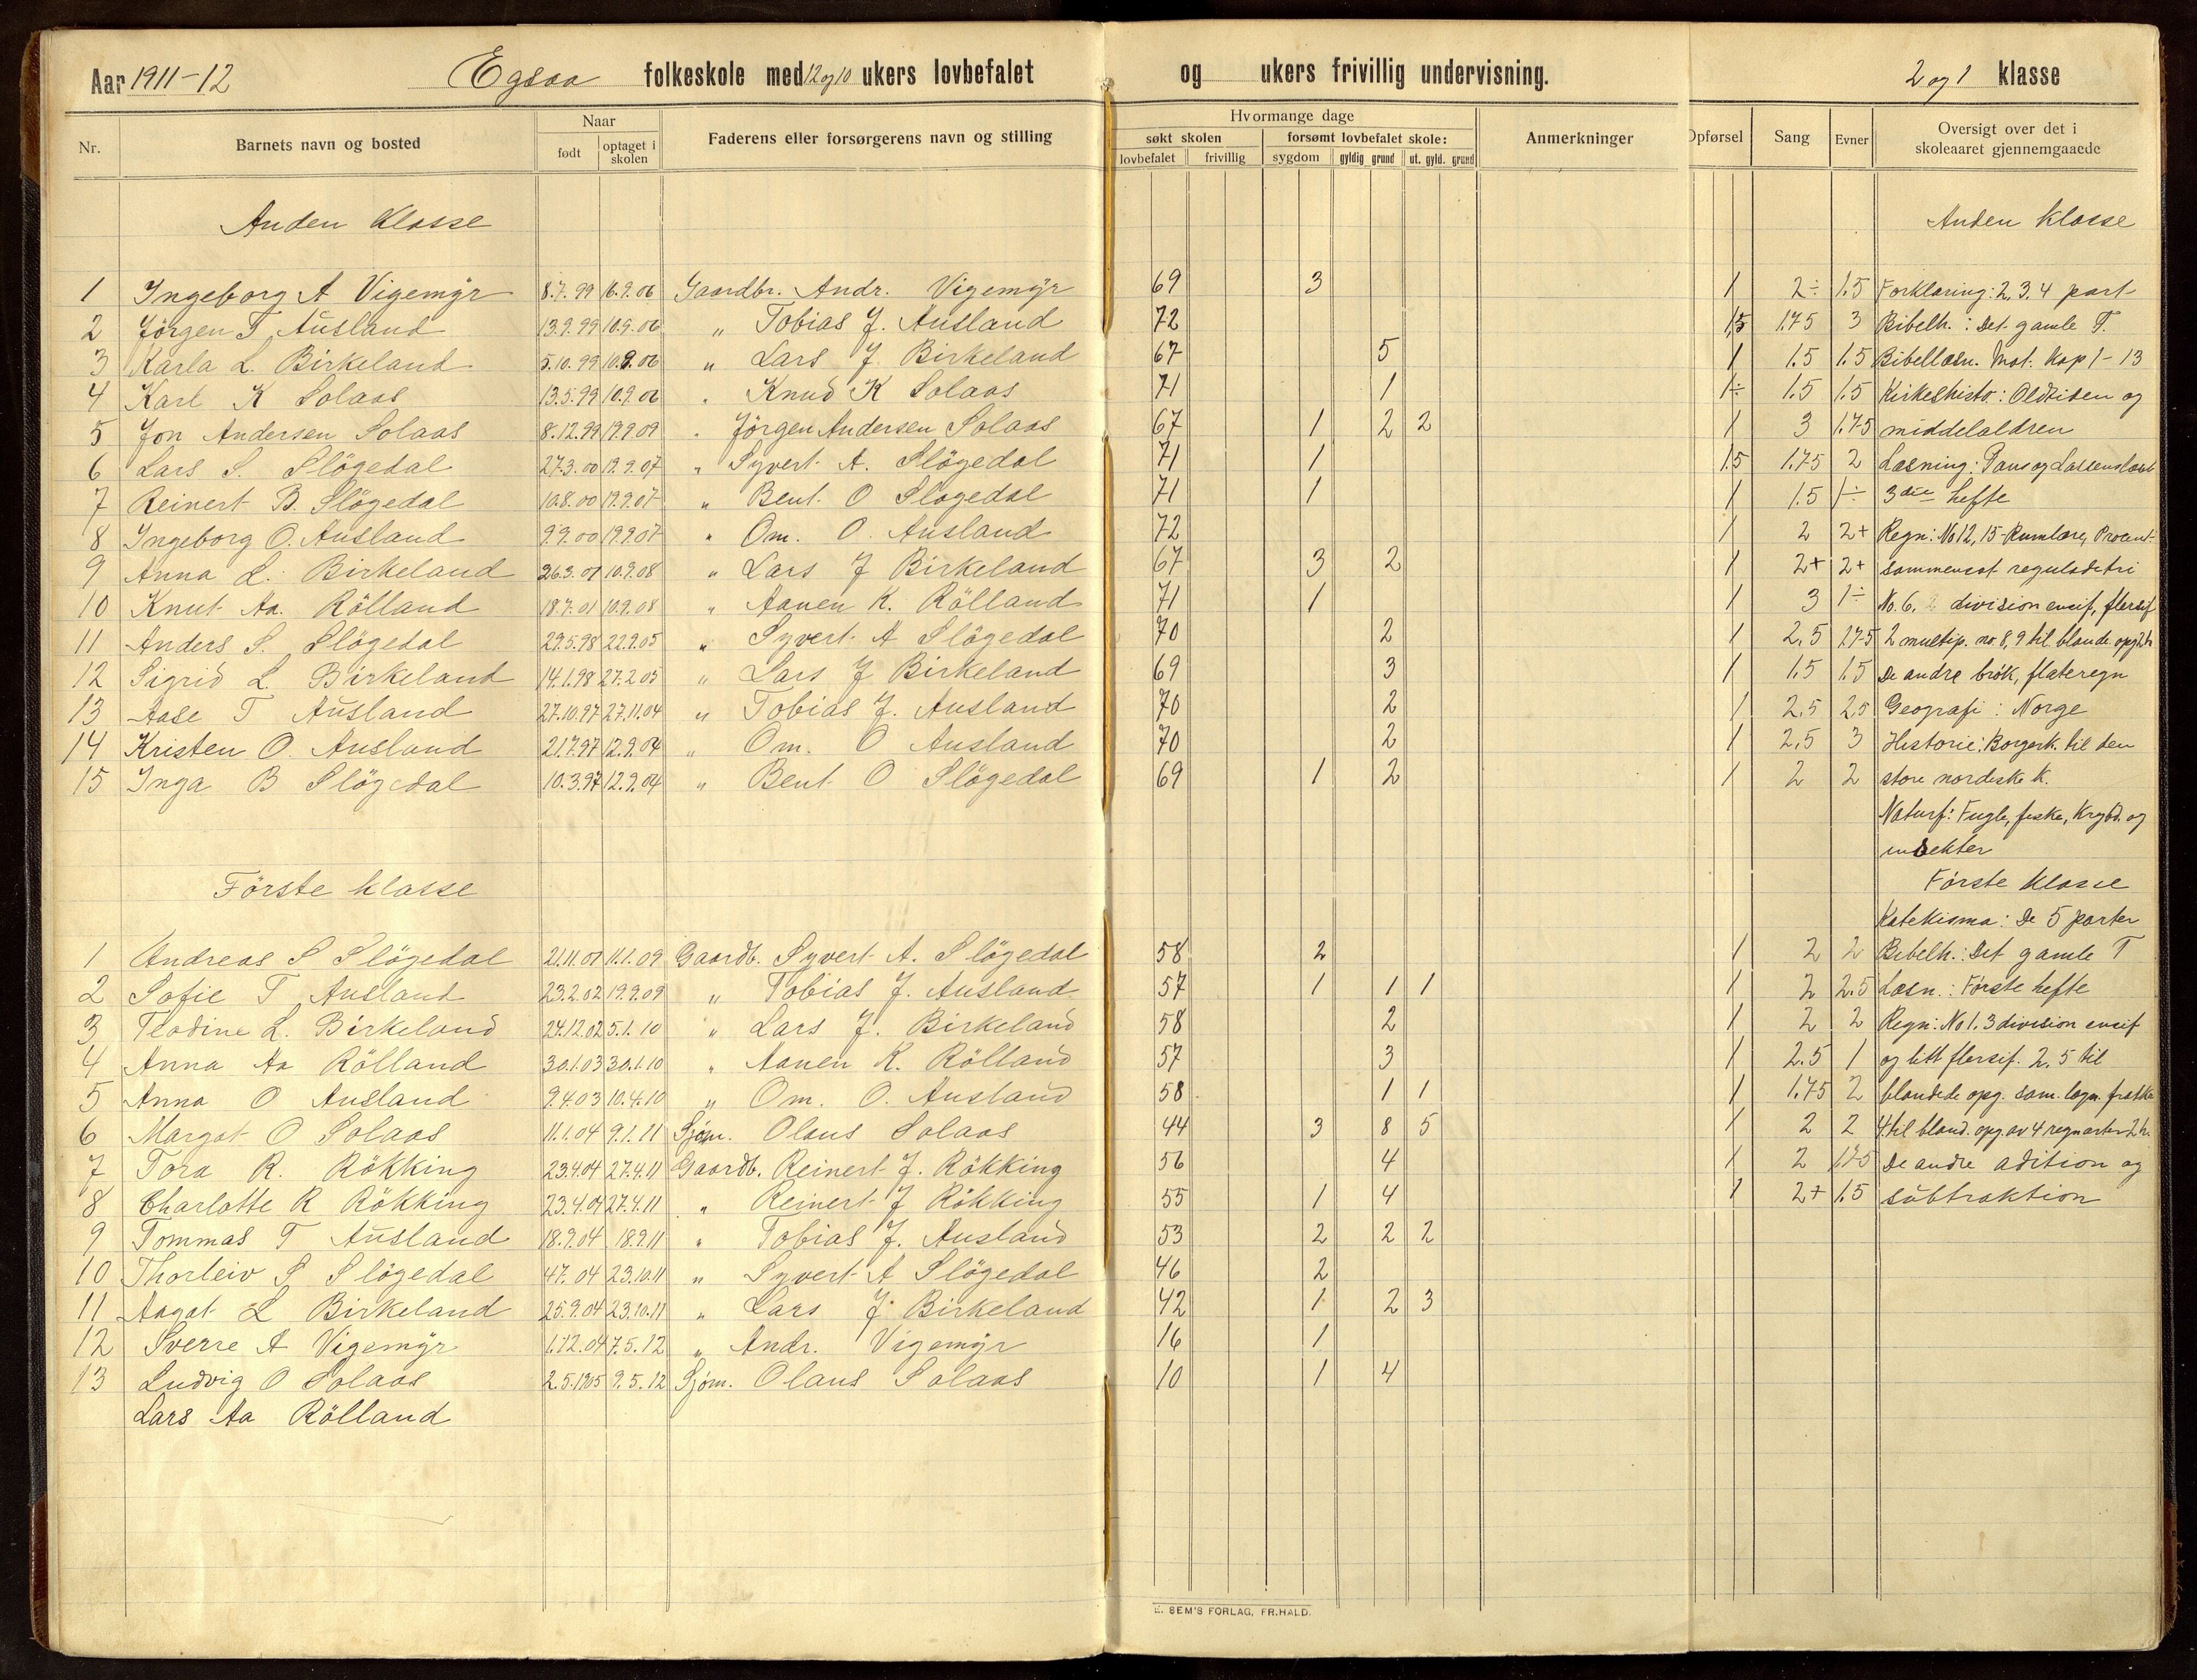 Aar 1911-12 Egsaa folkeskole med 12 og 10 ukers lovbefalet og ukers frivillig undervisning. 2 og 1 klasse
Nr. Barnets navn og bosted Naar født optaget i skolen Faderens eller forsørgerens navn og stilling Hvormange dage søkt skolen lovbefalet frivillig forsømt lovbefalet skole: sygdom gyldig grund ut. gyld. grund Anmerkninger Opførsel Sang Evner Oversigt over det i skoleaaret gjennemgaaede
Anden Klasse Anden klasse
1 Ingeborg A Vigemÿr 8.7.99 16.9.06 Gaardbr. Andr. Vigemÿr 69 3 1 2÷ 1.5 Forklaring: 2, 3, 4 part
2 Jörgen T Ausland 13.9.99 10.9.06 " Tobias J. Ausland 72 1,5 1.75 3 Bibelh.: Det gamle T.
3 Karla L. Birkeland 5.10.99 10.9.06 " Lars J Birkeland 67 5 1 1.5 1.5 Bibellæsn. Mat. Kap 1-13
4 Karl K Solaas 13.5.99 10.9.06 " Knud K Solaas 71 1 1÷ 1.5 1.5 Kirkehisto: Oldtiden og
5 Jon Andersen Solaas 8.12.99 19.9.09 " Jörgen Andersen Solaas 67 1 2 2 1 3 1.75 middelaldren
6 Lars S. Slögedal 27.3.00 19.9.07 " Syvert A. Slögedal 71 1 1.5 1.75 2 Læsning: Pauss og Lassens læseb
7 Reinert B. Slögedal 10.8.00 19.9.07 " Bent O Slögedal 71 1 1 1.5 1÷ 3die hefte
8 Ingeborg O. Ausland 9.9.00 19.9.07 " Om. O. Ausland 72 1 2 2+ Regn: No 12, 15 Rumlære, Procent
9 Anna L. Birkeland 26.3.01 10.9.08 " Lars J Birkeland 67 3 2 1 2+ 2+ sammensat reguladetri
10 Knut Aa. Rölland 18.7.01 10.9.08 " Aanen K. Rölland 71 1 1 3 1÷ No. 6. 2 division ensif, flersif
11 Anders S. Slögedal 29.5.98 22.9.05 " Syvert A Slögedal 70 2 1 2,5 2.75 2 multip. no. 8, 9 til bland. opg 2 h
12 Sigrid L. Birkeland 14.1.98 27.2.05 " Lars J Birkeland 69 3 1 1.5 1.5 De andre brök, flateregn
13 Aase T Ausland 27.10.97 27.11.04 " Tobias J. Ausland 70 2 1 2,5 2.5 Geografi: Norge
14 Kristen O. Ausland 21.7.97 12.9.04 " Om. O Ausland 70 2 1 2,5 3 Historie: Borgerk. til den
15 Inga B Slögedal 10.3.97 12.9.04 " Bent O Slögedal 69 1 2 1 2 2 store nordiske K.
Naturf: Fugle, fiske, Krybd. og
insekter
Förste klasse Förste Klasse
Katekisma: De 5 parter
1 Andreas S Slögedal 21.11.01 11.1.09 Gaardb. Syvert A. Slögedal 58 2 1 2 2 Bibelh.: Det gamle T
2 Sofie T Ausland 23.2.02 19.9.09 " Tobias J. Ausland 57 1 1 1 1 2 2.5 Læsn.: Förste hefte
3 Teodine L. Birkeland 24.12.02 5.1.10 " Lars J. Birkeland 58 2 1 2 2 Regn: No 1. 3 division ensif
4 Anna Aa Rölland 30.1.03 30.1.10 " Aanen K. Rölland 57 3 1 2.5 1 og litt flersif. 2, 5 til
5 Anna O Ausland 9.4.03 10.4.10 " Om. O. Ausland 58 1 1 1 1.75 2 blandede opg.
6 Margot O Solaas 11.1.04 9.1.11 Sjøm. Olaus Solaas 44 3 8 5 1 2 2 4 til bland. opg. av 4 regnarter 2 h.
7 Tora R. Rökking 23.4.04 27.4.11 Gaardb. Reinert J. Rökking 56 4 1 2 1.75 De andre adition og
8 Charlotte R Rökking 23.4.04 27.4.11 " Reinert J Rökking 55 1 4 1 2+ 1.5 subtraktion
9 Tommas T Ausland 18.9.04 18.9.11 " Tobias J. Ausland 53 2 2 2
10 Thorleiv S Slögedal 4.7.04 23.10.11 " Syvert A Slögedal 46 2
11 Aagot L Birkeland 25.9.04 23.10.11 " Lars J Birkeland 42 1 2 3
12 Sverre A Vigemÿr 1.12.04 7.5.12 " Andr. Vigemÿr 16 1
13 Ludvig O Solaas 2.5.1905 9.5.12 Sjøm. Olaus Solaas 10 1 4
Lars Aa Rölland
E. SEM'S FORLAG, FR.HALD.